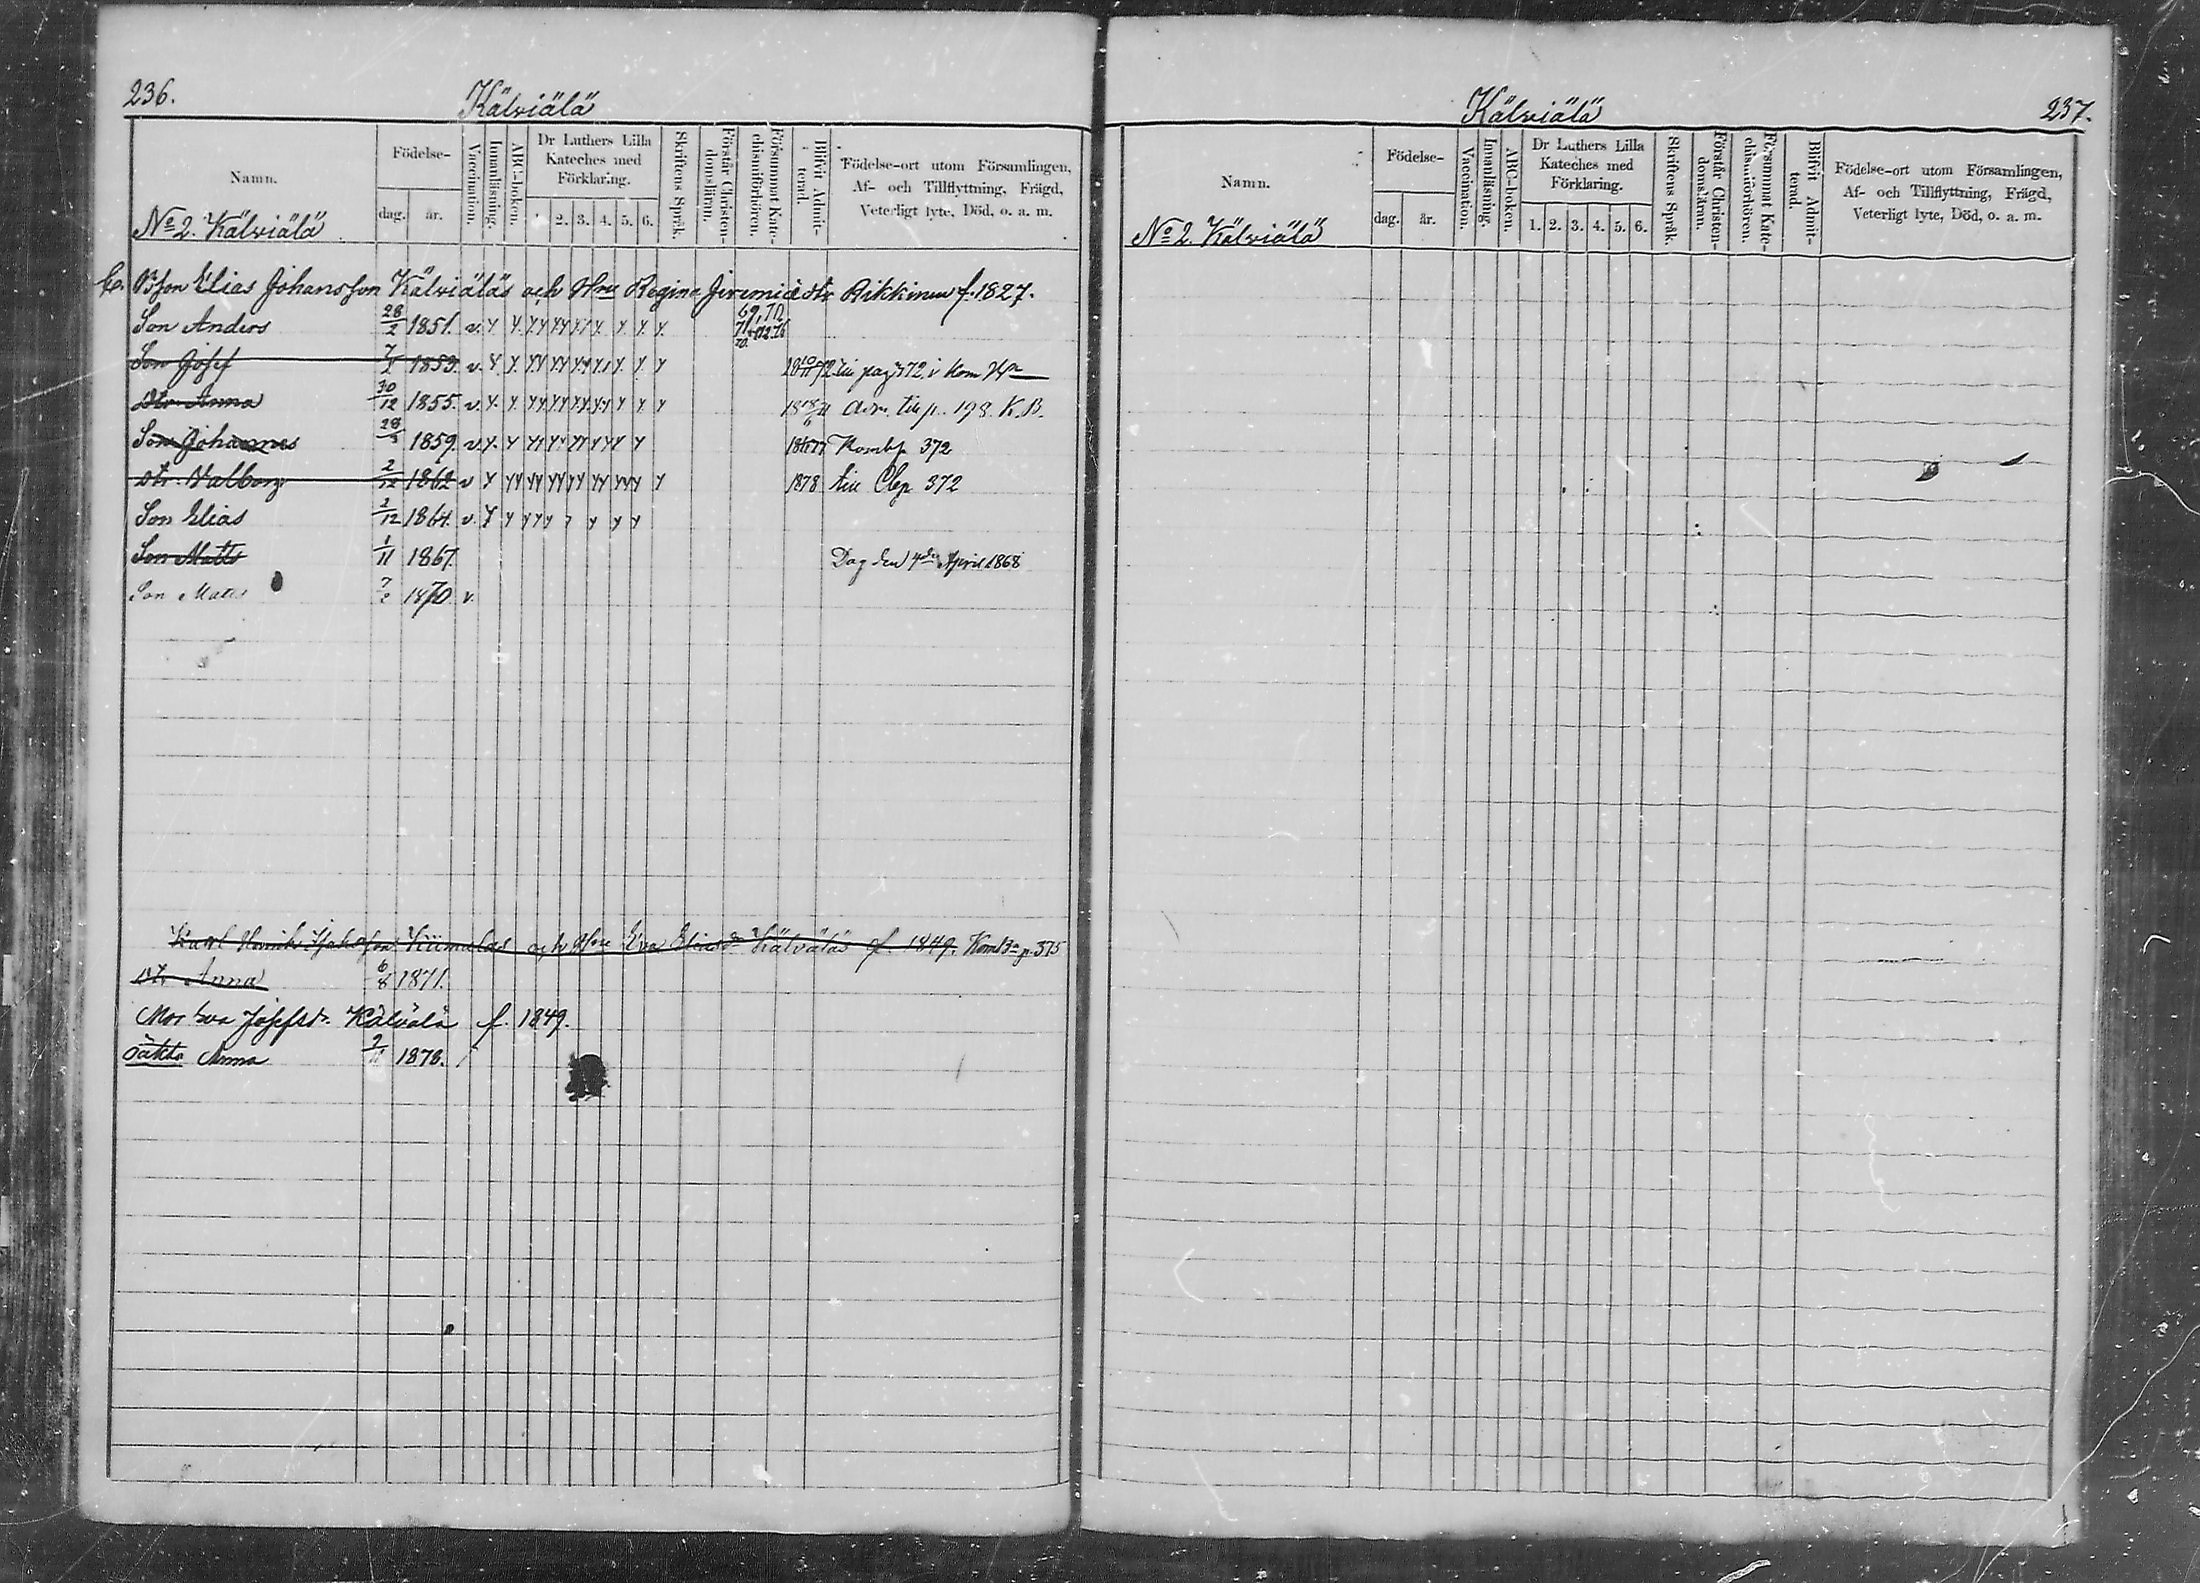 236.
Kälviälä
Namn.
Födelse-
dag.
år.
Vaccination.
Innanläsning.
ABC-boken.
Dr Luthers Lilla
Kateches med
Förklaring.
2. 3. 4. 5. 6.
Skriftens Språk.
Förstår Christen-
domsläran.
Försummat Kate-
chismiförhören.
Blifvit Admit-
terad.
Födelse-ort utom Församlingen,
Af- och Tillflyttning, Frägd,
Veterligt lyte, Död, o. a. m.
No 2. Kälviälä
Elias Johansson Kälviäläs och Hru Regina Jeremiæ dtr Rikkinen f. 1827.
Son Anders 28/2 1851. v. 69, 70
Son Josef 1853. v. till pag 372 i Kom
Dtr Anna 30/12 1855. v. till p. 198 K.B.
Son Johannes 1859. v. 372
Dtr Valborg 2/12 1862 v 1878 till 372
Son Elias 2/12 1864. v.
Son Matts 1/11 1867. Dog den 4de April 1868
Son Matts 1870. v.
Karl Henrik och Hru Eva Eliasdr Kälviäläs f. 1849. p. 375
Dtr Anna 6/8 1871.
Mor Eva Josefsdr. Kälviälä f. 1849.
oäkta Anna 1878.
Kälviälä
237.
Namn.
Födelse-
dag.
år.
Vaccination.
Innanläsning.
ABC-boken.
Dr Luthers Lilla
Kateches med
Förklaring.
1. 2. 3. 4. 5. 6.
Skriftens Språk.
Förstår Christen-
domsläran.
Försummat Kate-
chismiförhören.
Blifvit Admit-
terad.
Födelse-ort utom Församlingen,
Af- och Tillflyttning, Frägd,
Veterligt lyte, Död, o. a. m.
No 2. Kälviälä